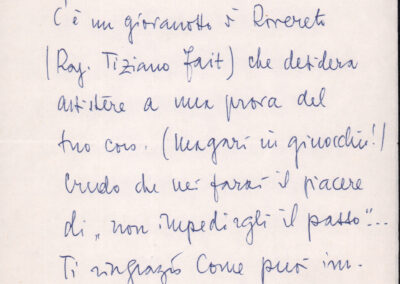 C'è un giovanotto di Rovereto
(Rag. Tiziano Fait) che desidera
assistere a una prova del
tuo coro. (Magari in ginocchio!)
Credo che mi farai il piacere
di „non impedirgli il passo"...
Ti ringrazio come puoi im-